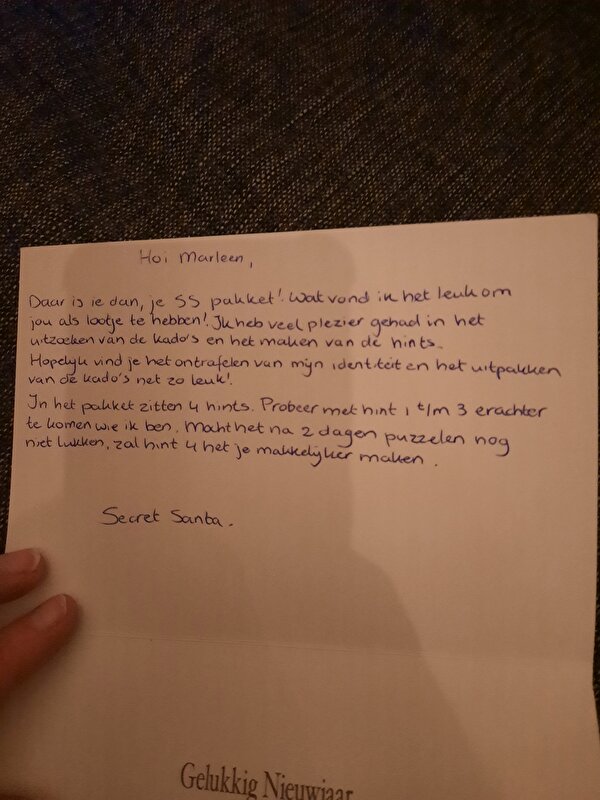 Hoi Marleen,
Daar is ie dan, je SS pakket! Wat vond ik het leuk om
jou als lootje te hebben! Ik heb veel plezier gehad in het
uitzoeken van de kado's en het maken van de hints.
Hopelijk vind je het ontrafelen van mijn identiteit en het uitpakken
van de kado's net zo leuk!
In het pakket zitten 4 hints. Probeer met hint 1 t/m 3 erachter
te komen wie ik ben. Maht het na 2 dagen puzzelen nog
niet lukken, zal hint 4 het je makkelijker maken.
Secret Santa.
Gelukkig Nieuwjaar